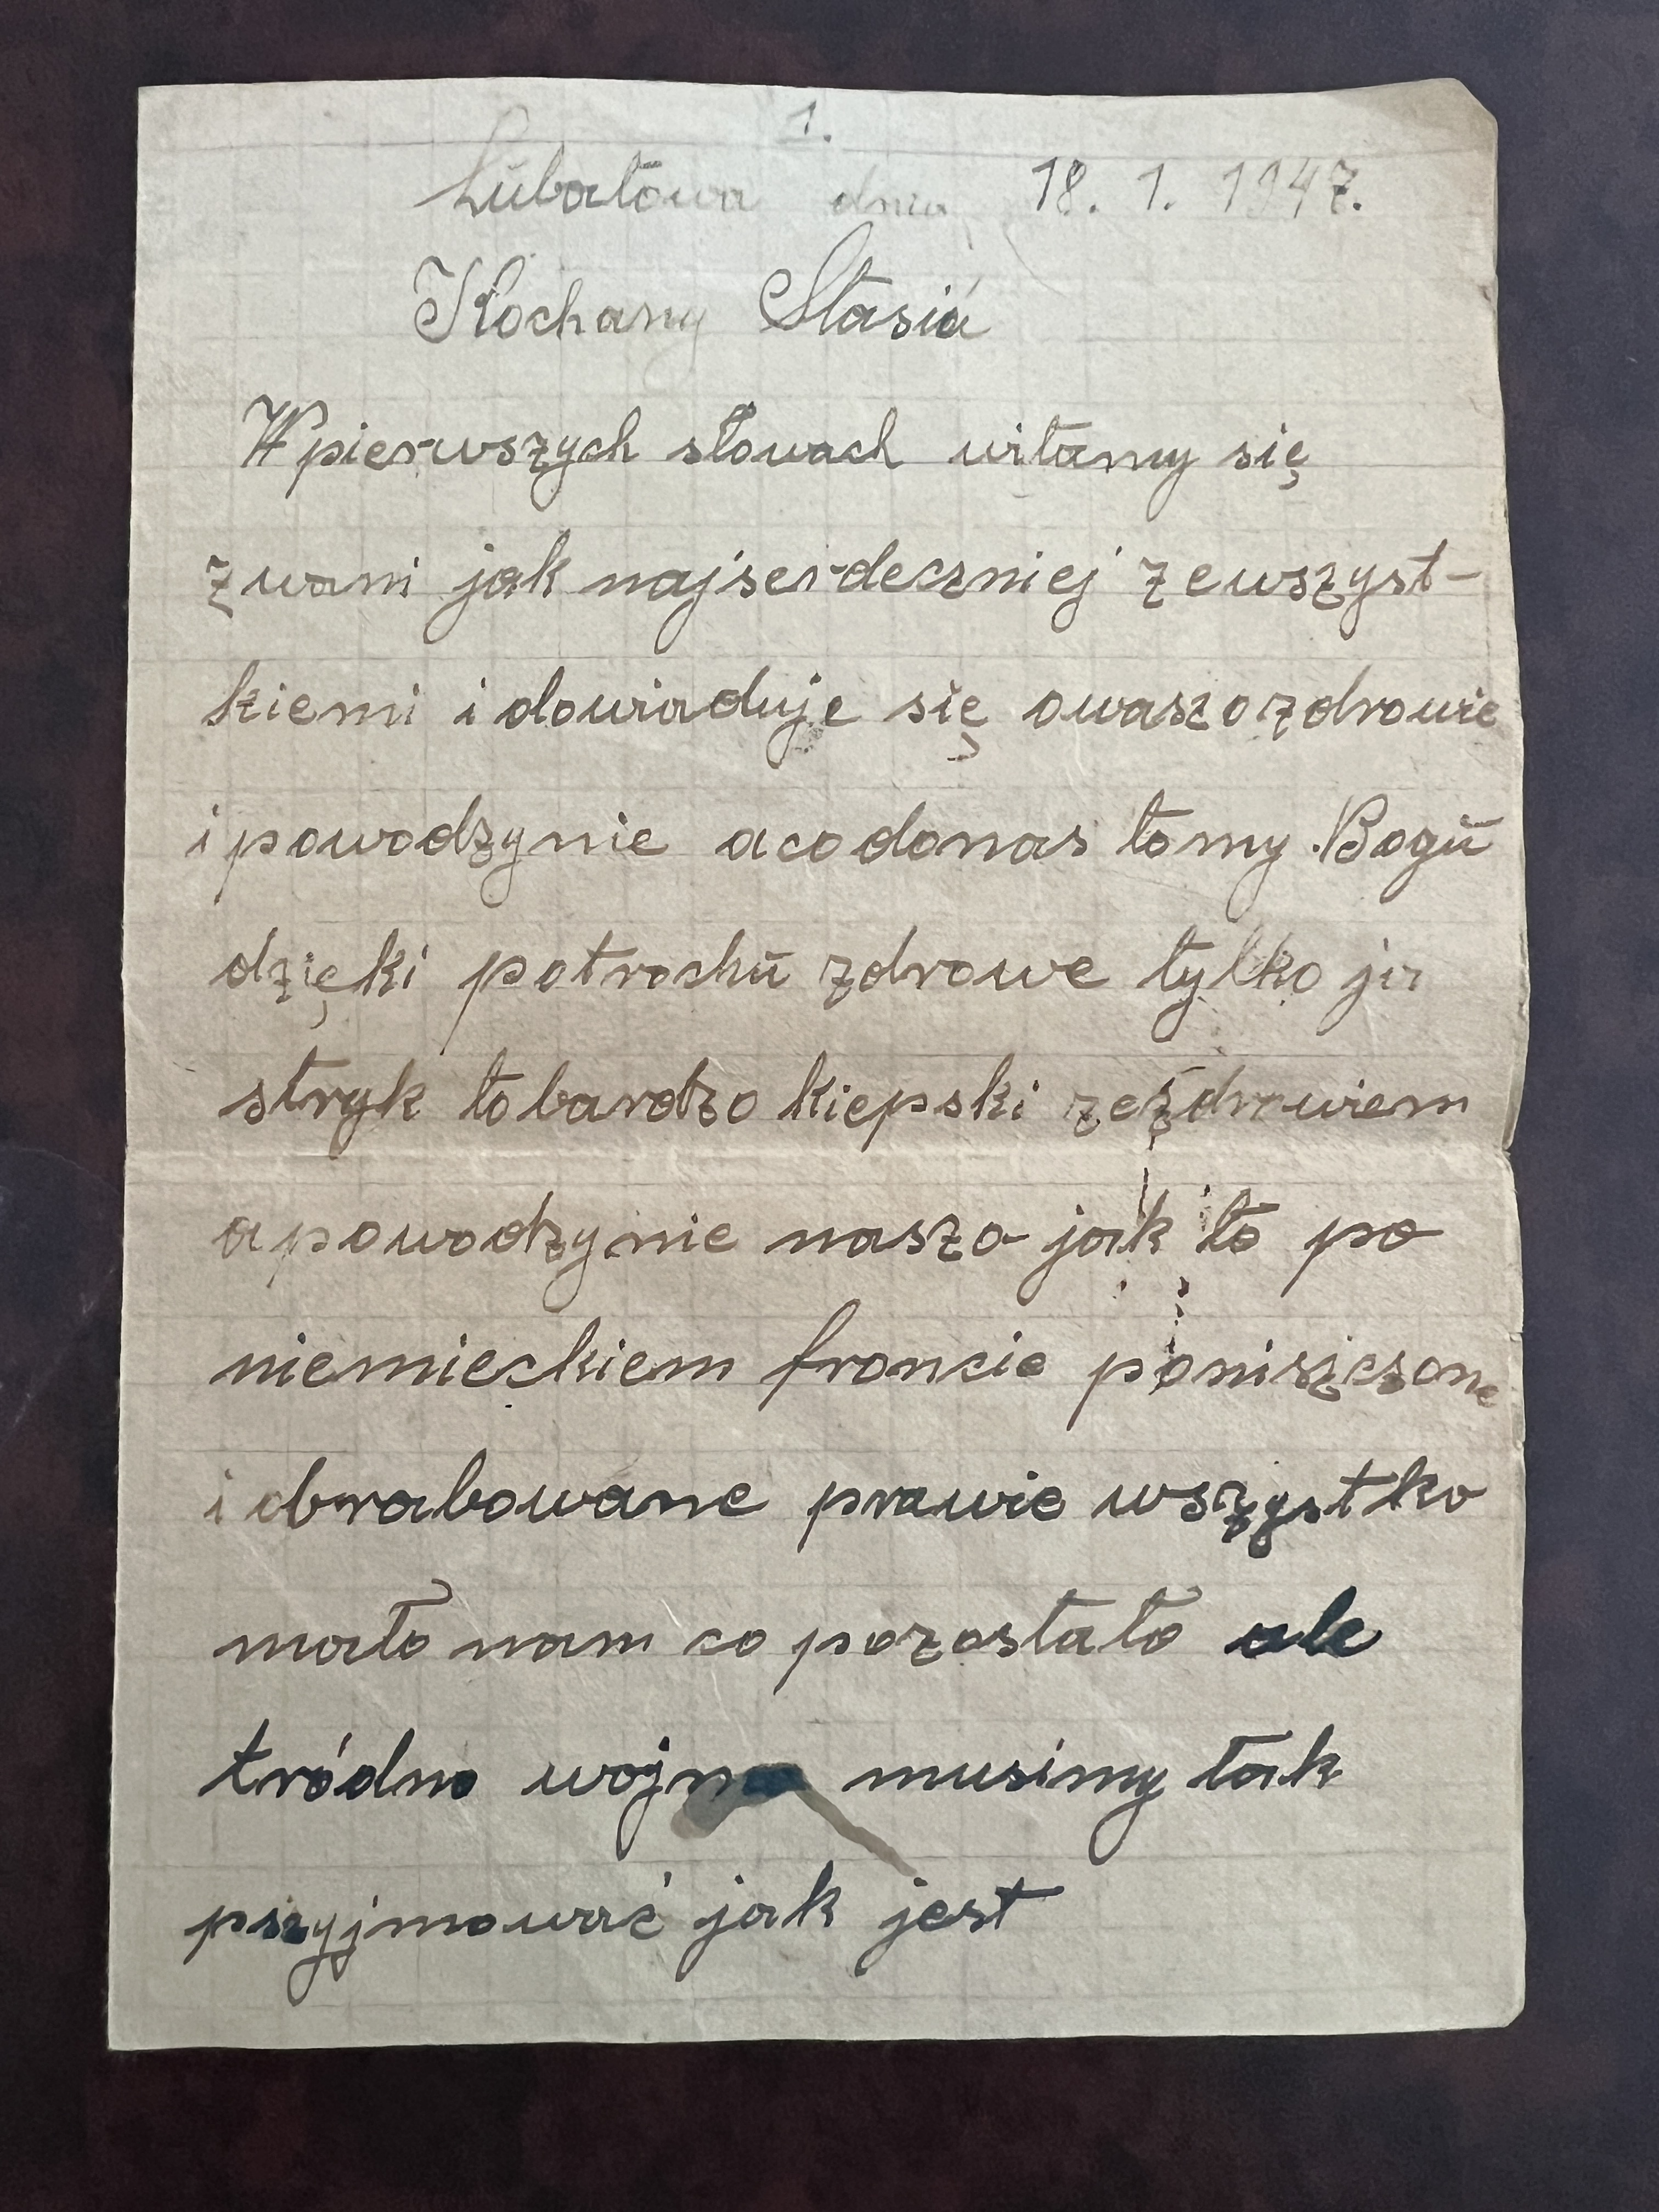 1.
Lubatowa dnia 18. 1. 1947.
Kochany Stasiu
W pierwszych słowach witamy się
z wami jak najserdeczniej ze wszyst-
kiemi i dowiaduje się o waszo zdrowie
i powodzynie a co do nas to my Bogu
dzięki potrochu zdrowe tylko ja
stryk to bardzo kiepski ze zdrowiem
a powodzynie naszo jak to po
niemieckiem froncie poniszczone
i obrabowane prawie wszystko
mało nam co pozostało ale
tródno wojna musimy tak
pszyjmować jak jest